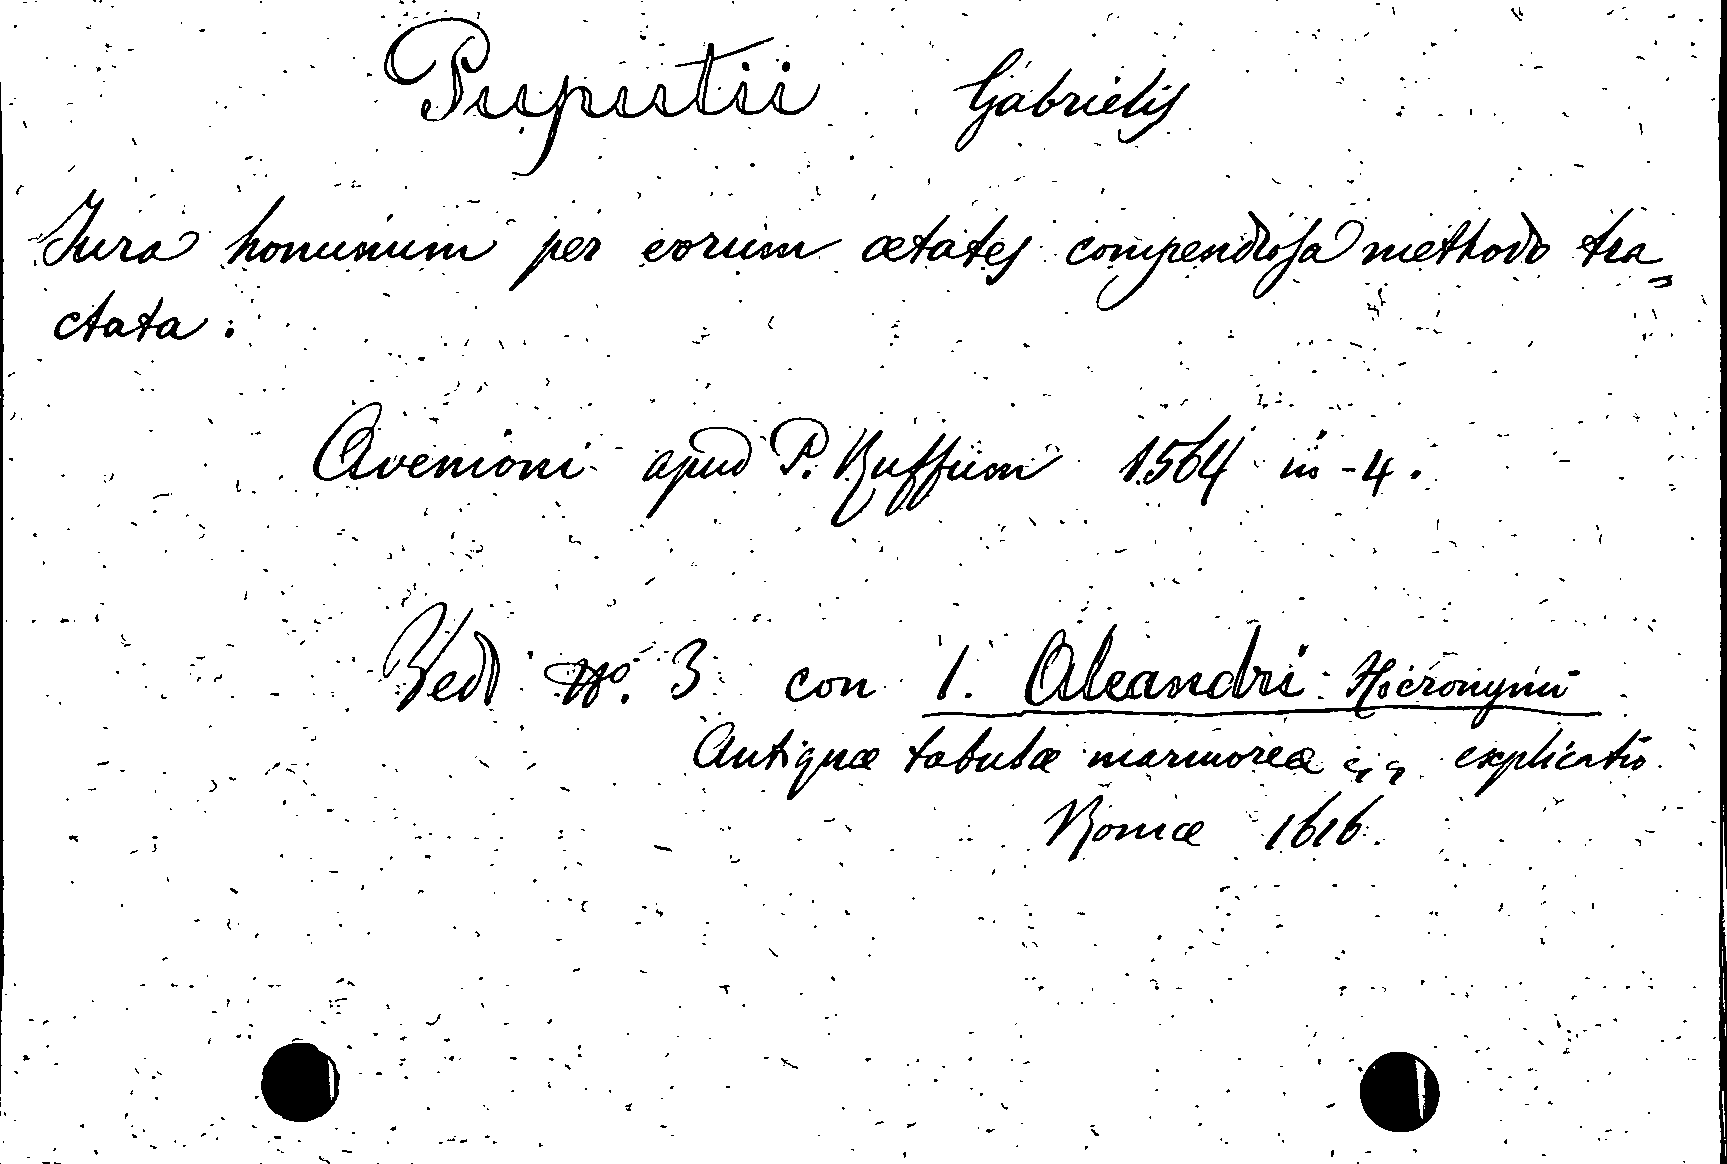 Puputii Gabrielis
Jura hominum per eorum ætates compendiosa methodo tra„
ctata.
Avenioni apud P. Ruffum 1564 in-4.
Vedi Nº. 3 con 1. Aleandri Hieronymi
Antiquæ tabulæ marmoreæ explicatio.
Romæ 1616.